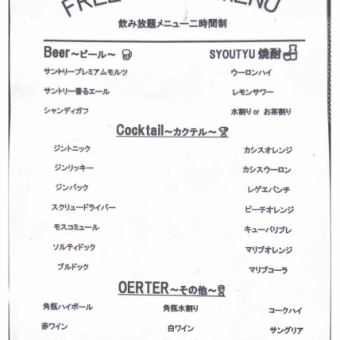 飲み放題メニュー二時間制
Beer～ビール～
サントリープレミアムモルツ
サントリー香るエール
シャンディガフ
SYOUTYU 焼酎
ウーロンハイ
レモンサワー
水割り or お茶割り
Cocktail～カクテル～
ジントニック
カシスオレンジ
ジンリッキー
カシスウーロン
ジンバック
レゲエパンチ
スクリュードライバー
ピーチオレンジ
モスコミュール
キューバリブレ
ソルティドック
マリブオレンジ
ブルドック
マリブコーラ
OERTER～その他～
角瓶ハイボール
角瓶水割り
コークハイ
赤ワイン
白ワイン
サングリア